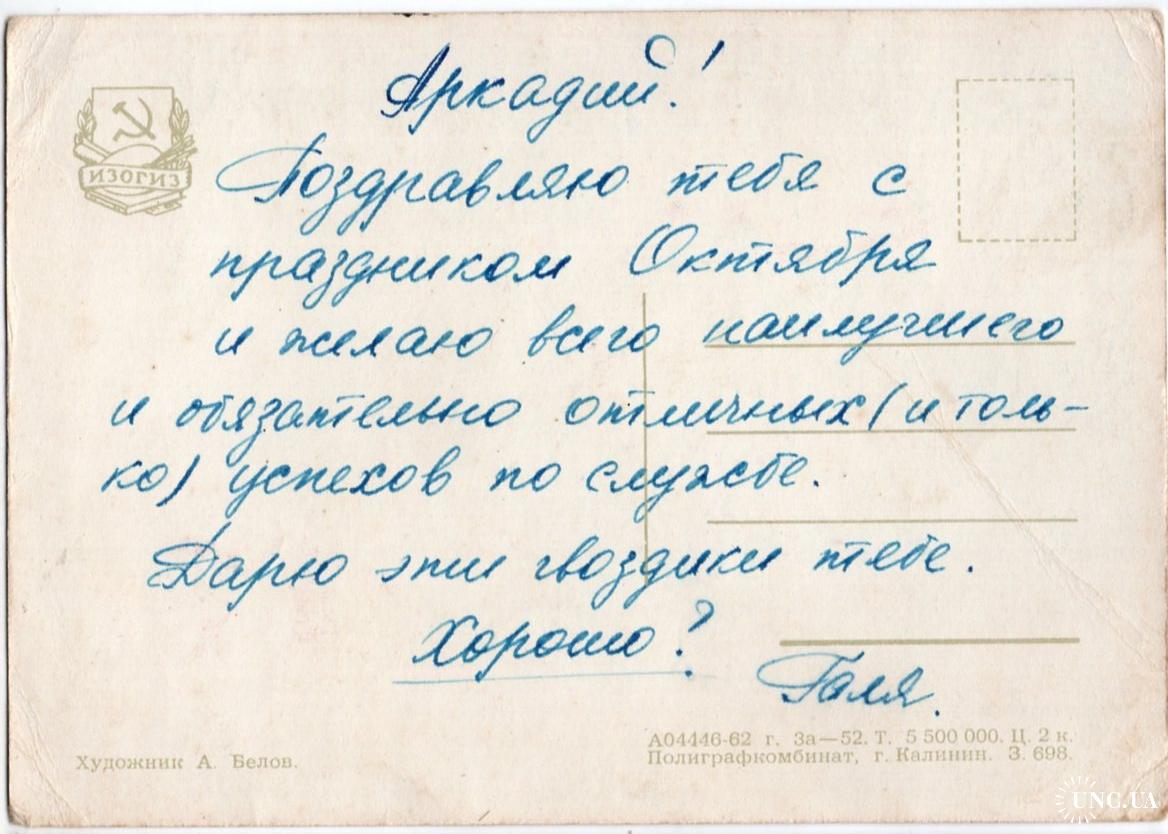 Аркадий!
ИЗОГИЗ
Поздравляю тебя с
праздником Октября
и желаю всего наилучшего
и обязательно отличных (и толь-
ко) успехов по службе.
Дарю эти гвоздики тебе.
Хорошо?
Галя.
Художник А. Белов.
А04446-62 г. За—52. Т. 5 500 000. Ц. 2 к.
Полиграфкомбинат, г. Калинин. З. 698.
UNC.UA